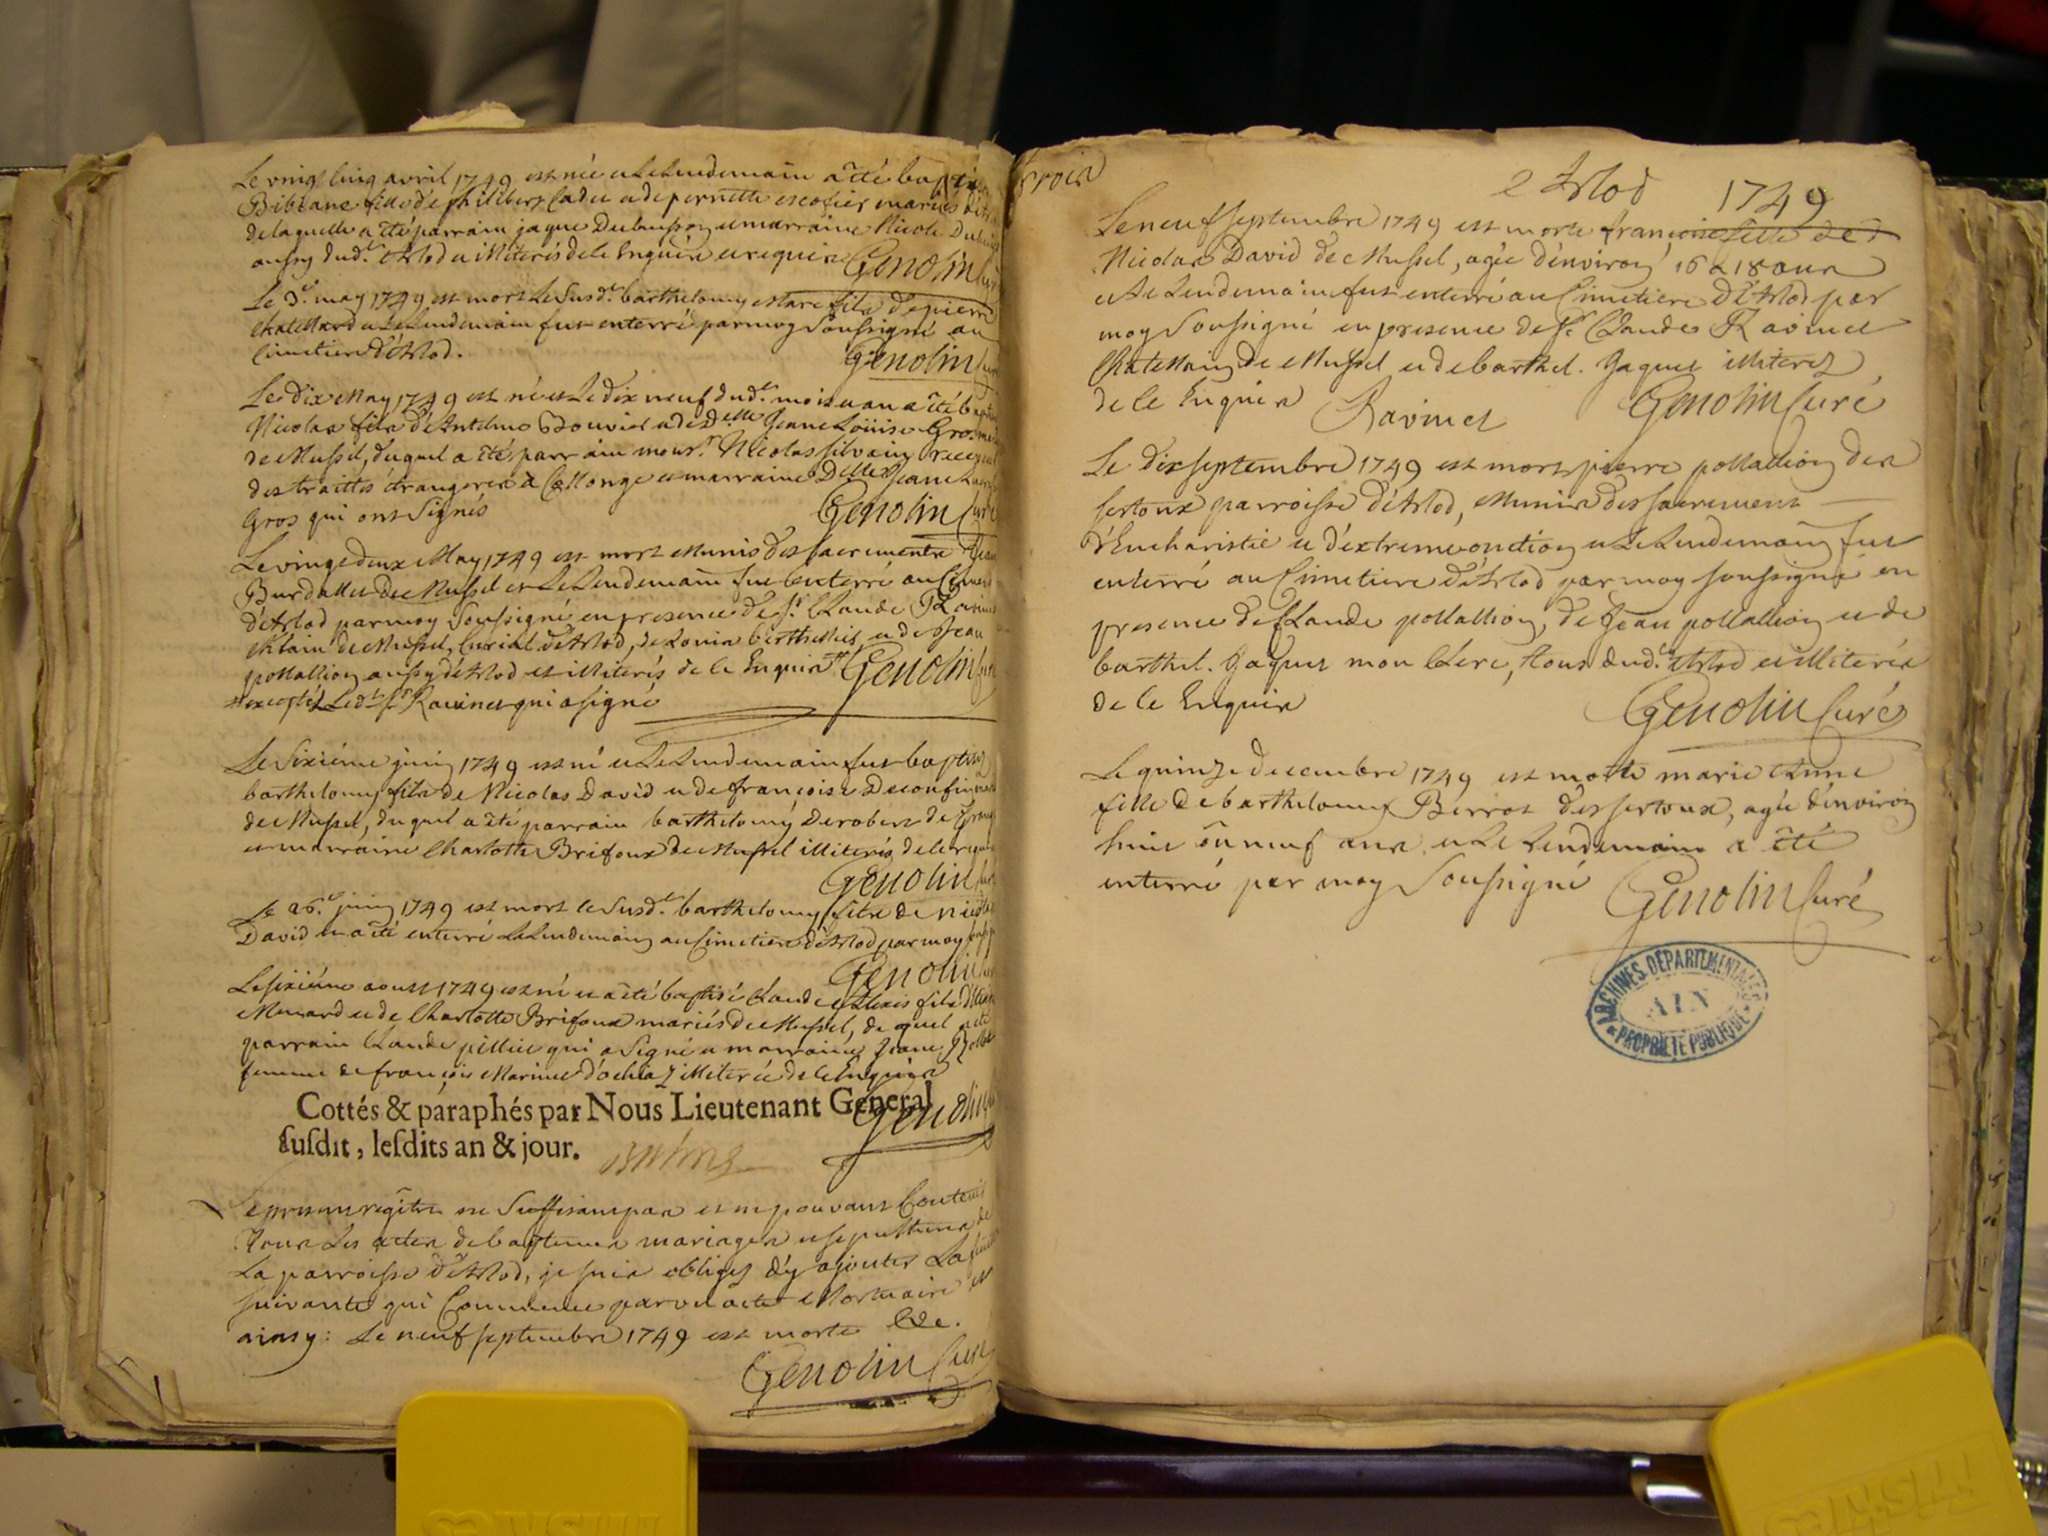 Le vingt cinq avril 1749 est née et Le Lendemain a été
Bibiane fille de philibert Cadet et de pernette escofier mariés
de laquelle a été parrain jaque et marraine Nicole
aussy dud.t Arlod illiterés de ce Enquéris et requis Genolin Curé
Le 3.e may 1749 est mort Le Susd.t barthelemy fils de pierre
et Le Lendemain fut enterré par moy Soussigné au
Cimetiere d'Arlod. Genolin Curé
Le dix May 1749 est né et Le dix neuf dud.t mois et an a été
Nicolas fils d'Antelme Bouvier et de Delle Jeane Loüise Gros
de Mussel, duquel a été parrain mons.r Nicolas silvain
des traittes étrangeres à Collonge et marraine Delle Jeane
Gros qui ont Signés Genolin Curé
Le vingt deux May 1749 est mort Munis des sacrements
Burdallet de Mussel et Le Lendemain fut enterré au
d'Arlod par moy Soussigné en presence de S.r Claude Ravinet
de Mussel, Curial d'Arlod, de Louis berthellier et de Jean
pollallion aussy d'Arlod et illiterés de ce Enquis Genolin Curé
excepté Led.t S.r Ravinet qui a signé
Le Sixiéme juin 1749 est né et Le Lendemain fut baptisé
barthelemy fils de Nicolas David et de françoise Deconfin
de Mussel, duquel a été parrain barthelemy Derobert
et marraine Charlotte Brifoux de Mussel illiterés de ce
Genolin Curé
Le 26.e juin 1749 est mort le Susd.t barthelemy fils de Nicolas
David et a été enterré Le Lendemain au Cimetiere d'Arlod par moy
Genolin
Le sixiéme aoust 1749 est né et a été baptisé Claude Alexis fils
Menard et de Charlotte Brifoux mariés de Mussel, de quel a été
parrain Claude pillier qui a Signé et marraine Jeane
femme de françois Marinet d'ochiaz illiterée de ce Enquise
Genolin
Cottés & paraphés par Nous Lieutenant General
susdit, lesdits an & jour.
Le present regître ne Suffisant pas et ne pouvant Contenir
Tous Les actes de baptemes mariages et sepultures de
La parroisse d'Arlod, je suis obliger d'y ajouter La
Suivante qui Commence par un acte Mortuaire
ainsy: Le neuf septembre 1749 est morte &c.
Genolin Curé
trois
2 Arlod 1749
Le neuf septembre 1749 est morte françoise fille de
Nicolas David de Mussel, agée d'environ 16 à 18 ans
et Le Lendemain fut enterré au Cimetiere d'Arlod par
moy Soussigné en presence de S.r Claude Ravinet
Chatellain de Mussel et de barthel. Jaquet illiterez
de ce Enquis Ravinet Genolin Curé
Le dix septembre 1749 est mort pierre pollallion des
sertoux parroisse d'Arlod, Munis des sacrements
d'Eucharistie et d'extremeonction et Le Lendemain fut
enterré au Cimetiere d'Arlod par moy soussigné en
presence de Claude pollallion, de Jean pollallion et de
barthel. Jaquet mon Clerc, Tous dud.t Arlod et illiterés
de ce Enquis Genolin Curé
Le quinze decembre 1749 est morte marie Anne
fille de barthelemy Berrot des sertoux, agée d'environ
huit où neuf ans et Le Lendemain a été
enterré par moy Soussigné Genolin Curé
ARCHIVES DEPARTEMENTALES
AIN
PROPRIETE PUBLIQUE